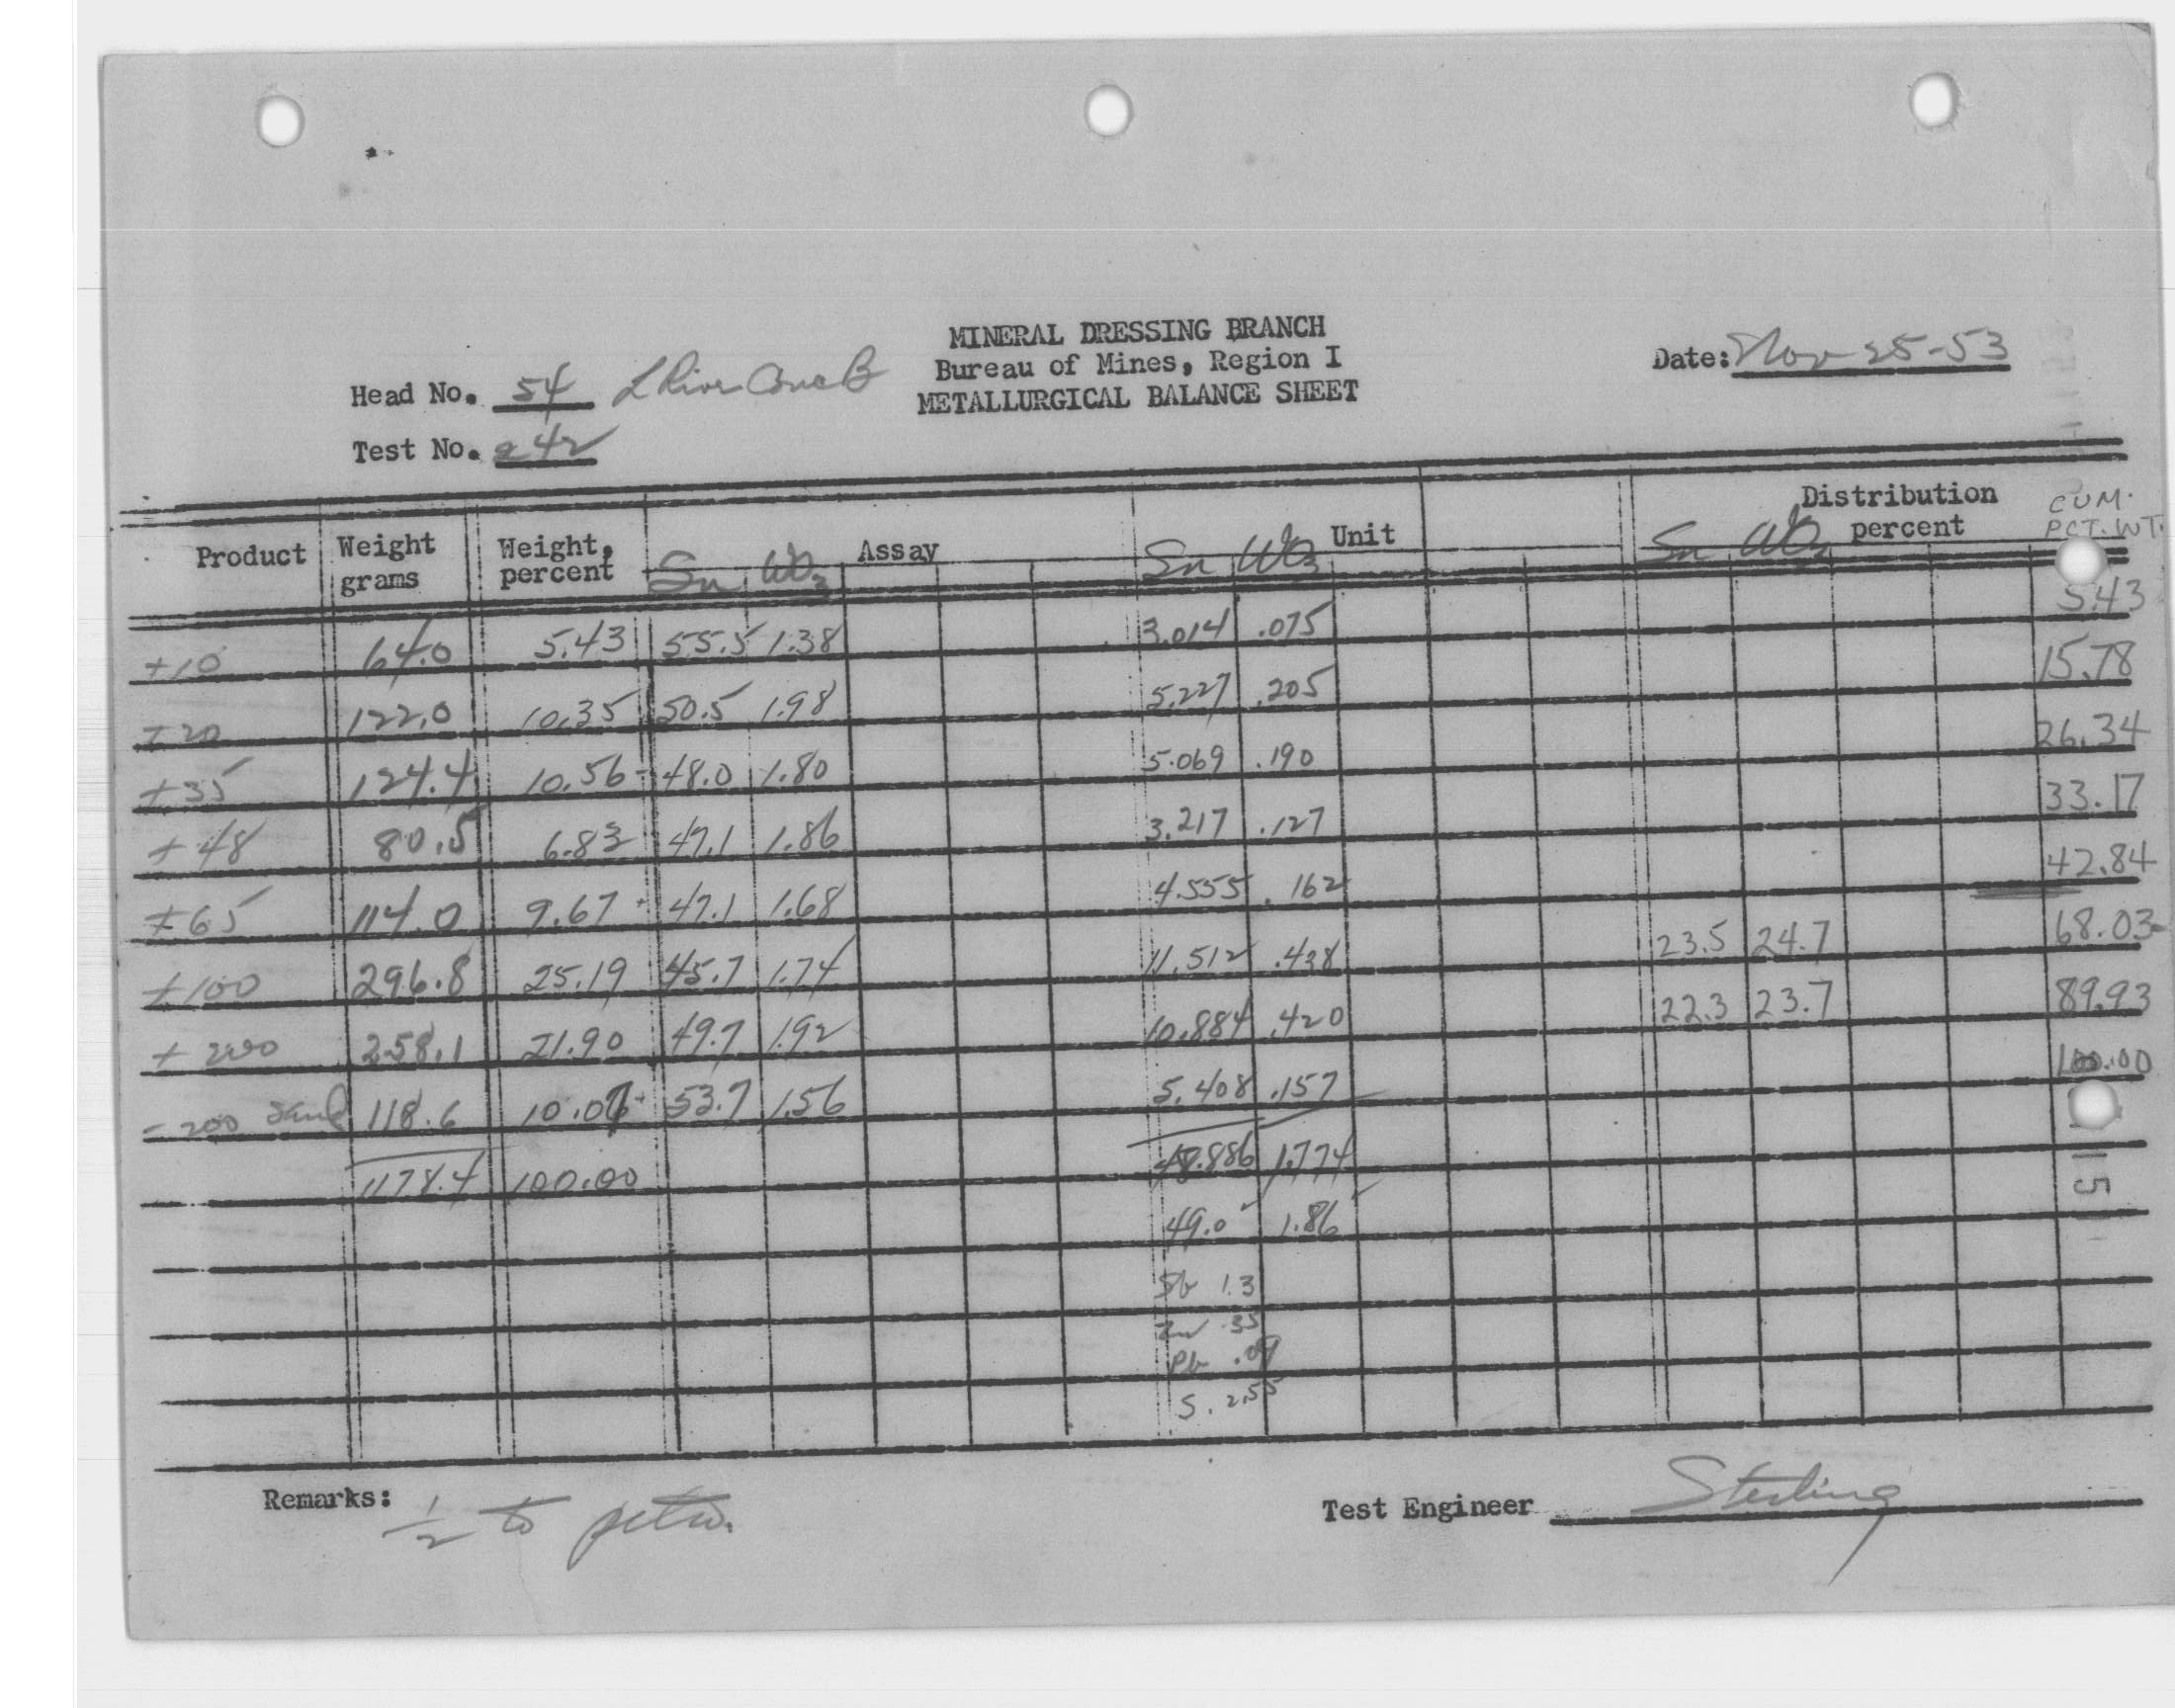 MINERAL DRESSING BRANCH
Bureau of Mines, Region I
METALLURGICAL BALANCE SHEET
Date: Nov 25-53
Head No. 54 L River Conc B
Test No. 242
Product Weight grams Weight, percent Sn WO3 Assay Sn WO3 Unit Sn WO3 Distribution percent CUM. PCT. WT.
+10 64.0 5.43 55.5 1.38 3.014 .075 5.43
+20 122.0 10.35 50.5 1.98 5.227 .205 15.78
+35 124.4 10.56- 48.0 1.80 5.069 .190 26.34
+48 80.5 6.83 47.1 1.86 3.217 .127 33.17
+65 114.0 9.67+ 47.1 1.68 4.555 .162 42.84
+100 296.8 25.19 45.7 1.74 11.512 .438 23.5 24.7 68.03
+200 258.1 21.90 49.7 1.92 10.884 .420 22.3 23.7 89.93
-200 sand 118.6 10.07+ 53.7 1.56 5.408 .157 100.00
1178.4 100.00 48.886 1.774
49.0 1.86
Sb 1.3
Zn .35
Pb .09
S. 2.55
15
Remarks: 1/2 to petro.
Test Engineer Sterling